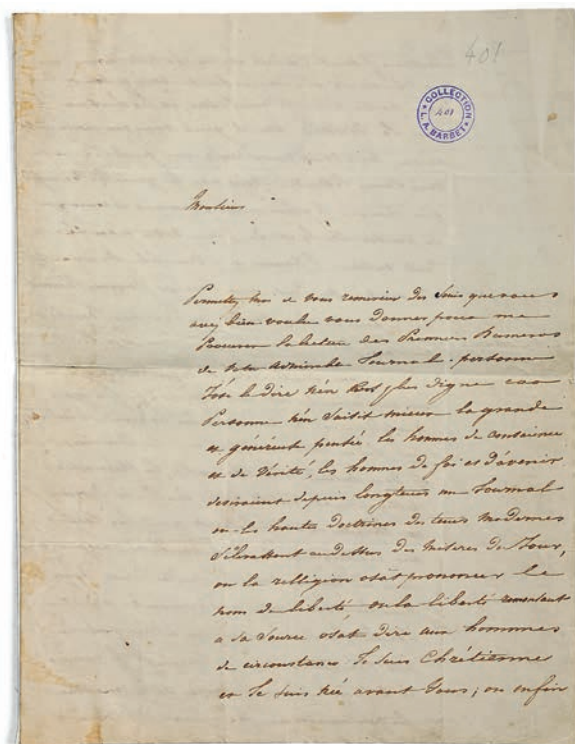 401
COLLECTION
401
L. A. BARBET
Monsieur
Permettez moi de vous remercier des soins que vous
avez bien voulu vous donner pour me
Procurer la lecture des Premiers Numeros
de votre admirable Journal. personne
J'ose le dire n'en est plus digne car
Personne n'en saisit mieux la grande
et généreuse pensée. les hommes de conscience
et de Vérité, les hommes de foi et d'avenir
desiraient depuis longtems un Journal
ou les hautes doctrines des tems modernes
s'élevassent au dessus des miseres du Jour,
ou la relligion osat prononcer le
nom de liberté ou la liberté remontant
a sa source osat dire aux hommes
de circonstance Je suis Chrétienne
et Je suis née avant Vous; ou enfin